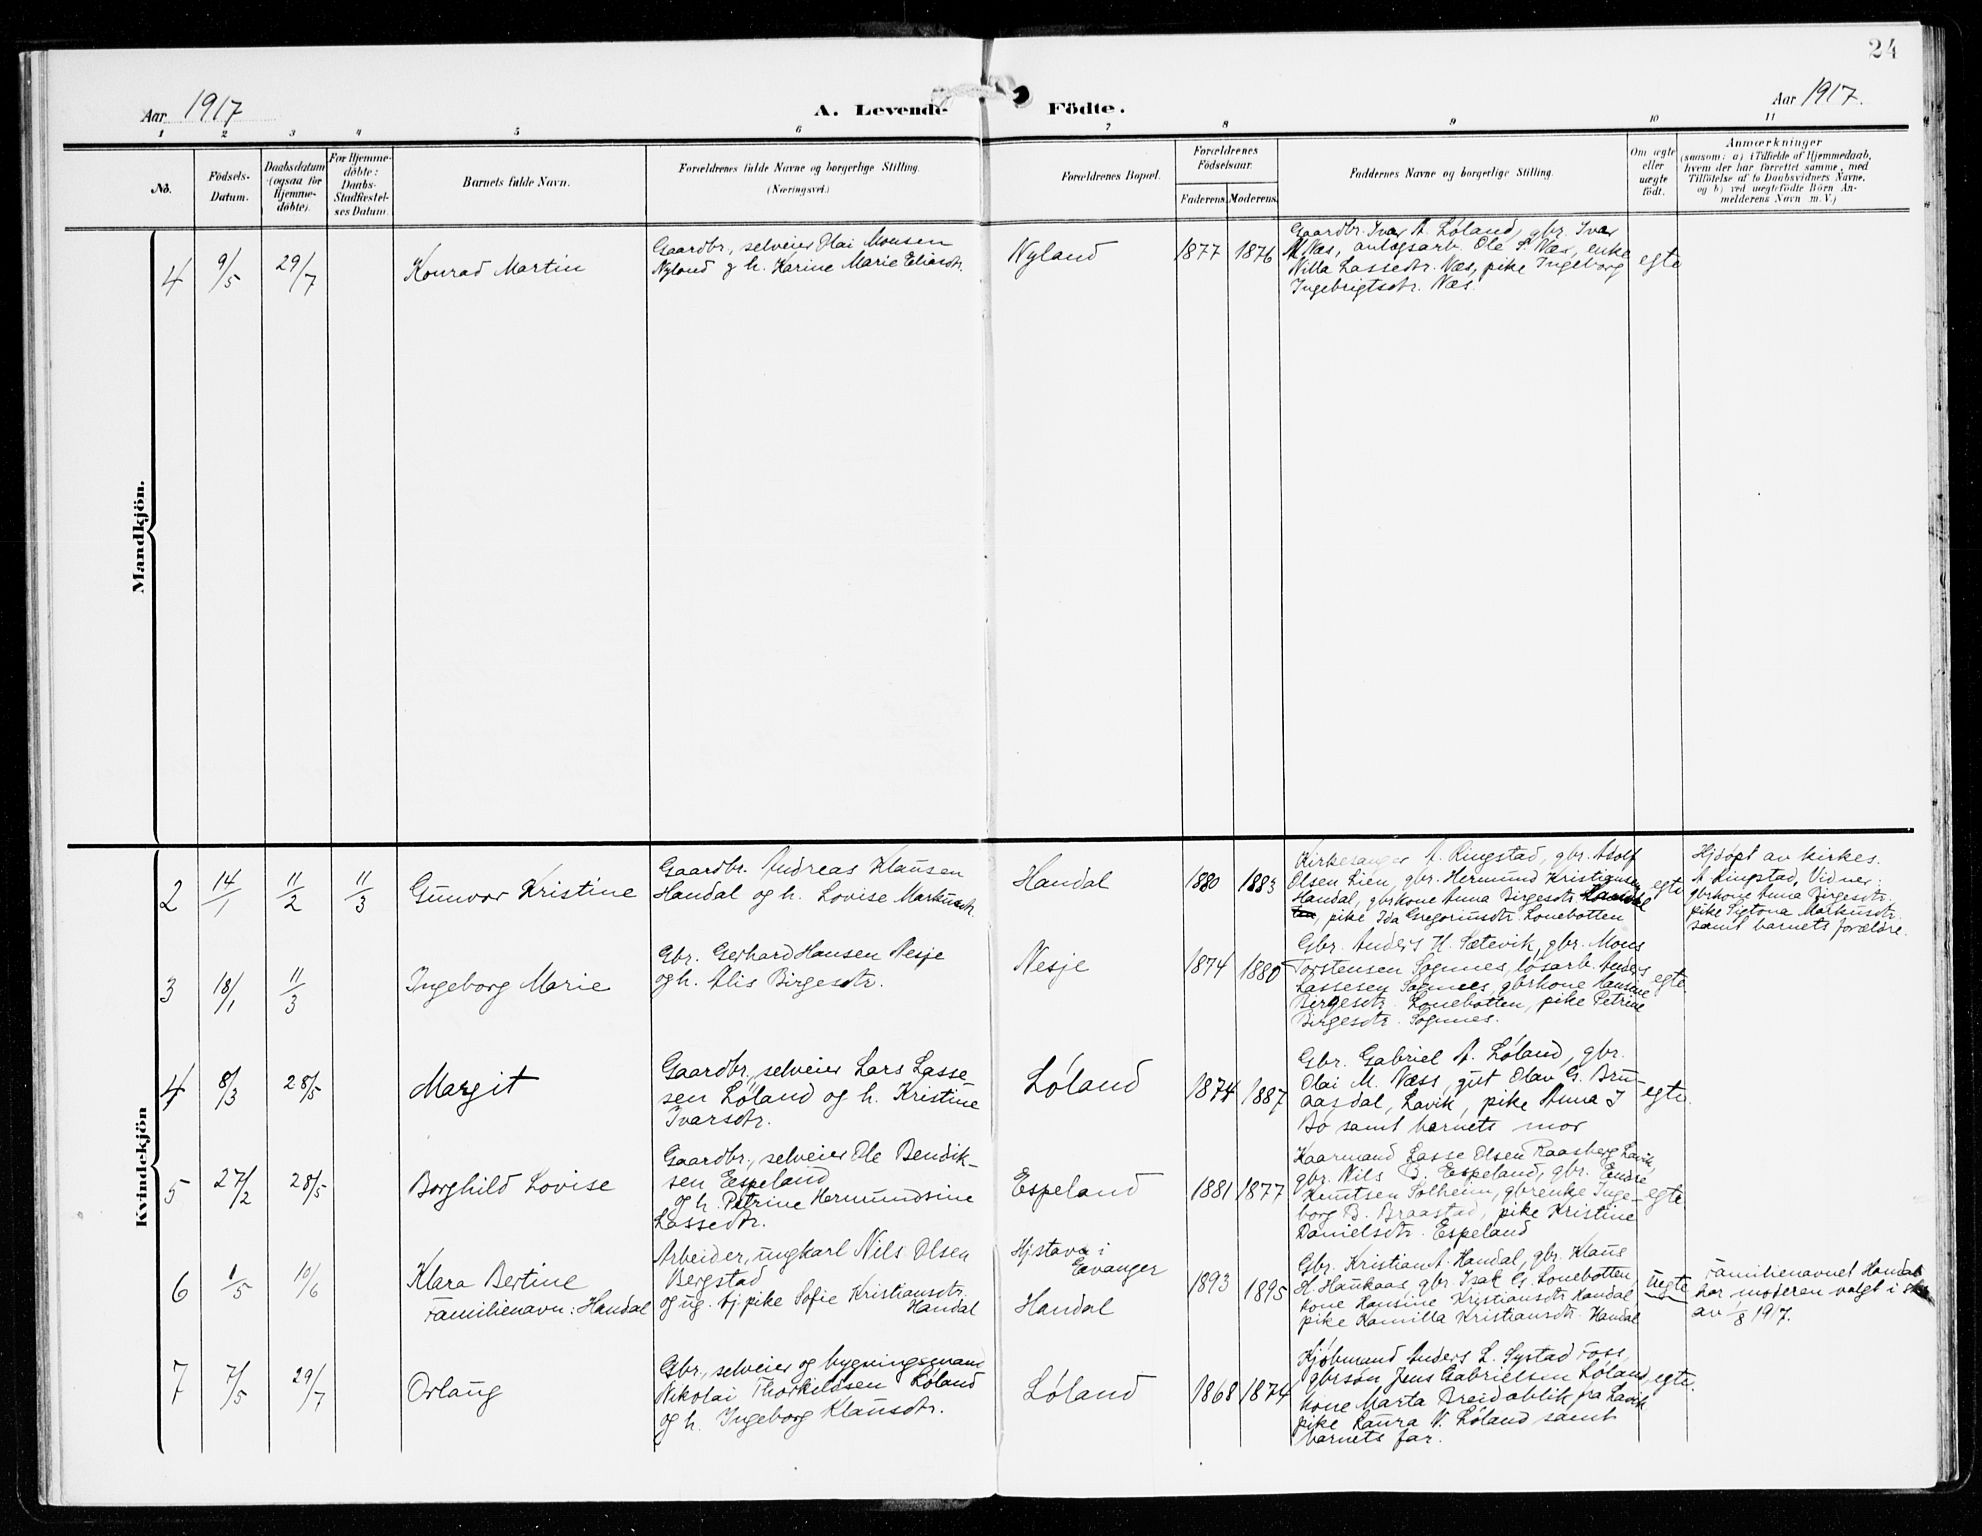 24
Aar 1917
A. Levende Födte.
Aar 1917.
1 2 3 4 5 6 7 8 9 10 11
No.
Födsels-
Datum.
Daabsdatum
(ogsaa for
Hjemme-
døbte).
For Hjemme-
døbte:
Daabs-
Stadfæstel-
ses Datum.
Barnets fulde Navn.
Forældrenes fulde Navne og borgerlige Stilling.
(Næringsvei.)
Forældrenes Bopæl.
Forældrenes
Födselsaar.
Faderens. Moderens.
Faddernes Navne og borgerlige Stilling.
Om ægte
eller
uægte
født.
Anmærkninger
(saasom: a) i Tilfælde af Hjemmedaab,
hvem der har forrettet samme, med
Tilföielse af to Daabsvidners Navne,
og b) ved uægtefödte Börn An-
melderens Navn m. V.)
Mandkjön.
4
9/5
29/7
Konrad Martin
Gaardbr., selveier Olai Monsen
Nyland og h. Karine Marie Eliasdtr.
Nyland
1877
1876
Gaardbr. Ivar A. Løland, gbr. Ivar
M. Næs, anlægsarb. Ole P. Næs, enke
Nilla Lassedtr. Næs, pike Ingeborg
Ingebrigtsdtr. Næs.
egte
Kvindekjön
2
14/1
11/2
11/3
Gunvor Kristine
Gaardbr. Andreas Klausen
Handal og h. Lovise Markusdtr.
Handal
1880
1883
Kirkesanger A. Ringstad, gbr. Adolf
Olsen Lien, gbr. Hermund Kristiansen
Handal, gbrkone Anna Birgesdtr. Handal
, pike Ida Gregoriusdtr. Lonebotten
egte
Hjdøpt av kirkes.
A. Ringstad, Vidner:
gbrkone Anna Birgesdtr.
pike Sigtona Markusdtr.
samt barnets forældre.
3
18/1
11/3
Ingeborg Marie
Gbr. Gerhard Hansen Nesje
og h. Alis Birgesdtr.
Nesje
1874
1880
Gbr. Anders H. Sætevik, gbr. Mons
Torstensen Sognnes, løsarb. Anders
Lassesen Sognnes, gbrkone Hansine
Birgesdtr. Lonebotten, pike Petrine
Birgesdtr. Sognnes.
egte.
4
8/3
28/5
Margit
Gaardbr., selveier Lars Lasse
sen Løland og h. Kristine
Ivarsdtr.
Løland
1874
1887
Gbr. Gabriel A. Løland, gbr.
Olai M. Næss, gut Olav G. Bru-
aasdal, Lavik, pike Anna I
Bø samt barnets mor
egte.
5
27/2
28/5
Borghild Lovise
Gaardbr., selveier Ole Bendik-
sen Espeland
og h. Petrine Hermundsine
Lassedtr.
Espeland
1881
1877
Kaarmand Lasse Olsen Raasberg Lavik,
gbr. Nils B. Espeland, gbr. Endre
Knutsen Solheim, gbrenke Inge-
borg B. Braastad, pike Kristine
Danielsdtr. Espeland
egte.
6
1/5
10/6
Klara Bertine
Familienavn: Handal
Arbeider, ungkarl Nils Olsen
Bergstad
og ug. tj.pike Sofie Kristiansdtr.
Handal
Hjstavn i
Evanger
Handal
1893
1895
Gbr. Kristian A. Handal, gbr. Klaus
H. Haukaas, gbr. Isak G. Lonebotten,
kone Hansine Kristiansdtr. Handal
pike Kamilla Kristiansdtr. Handal
uegte
Familienavnet Handal
har moderen valgt i
av 1/8 1917.
7
7/5
29/7
Orlaug
Gbr., selveier og bygningsmand
Nikolai Thorkildsen Løland
og h. Ingeborg Klausdtr.
Løland
1868
1874
Kjøbmand Anders L. Systad Foss,
gbrsøn Jens Gabrielsen Løland,
kone Marta Breidablik fra Lavik
pike Laura N. Løland samt
barnets far.
egte.